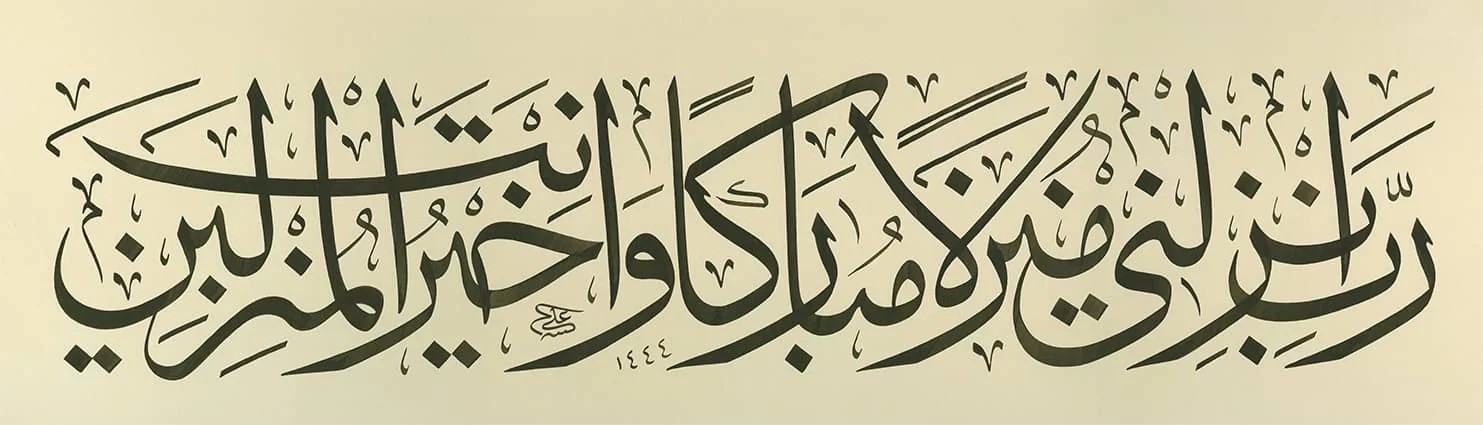 رَبِّ أَنْزِلْنِي مُنْزَلًا مُبَارَكًا وَأَنْتَ خَيْرُ الْمُنْزِلِينَ
علي
١٤٤٤